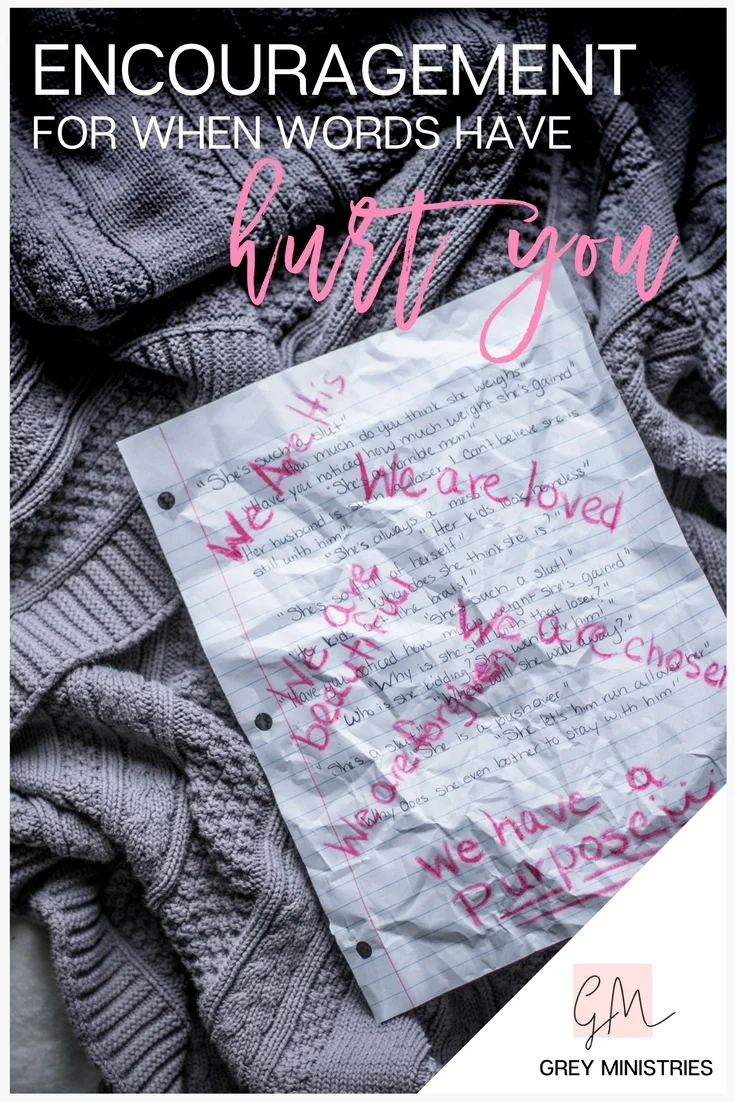 ENCOURAGEMENT
FOR WHEN WORDS HAVE
hurt you
"She's such a slut"
"How much do you think she weighs"
"Have you noticed how much weight she's gained"
"She's a horrible mom"
"Her husband is such a loser I can't believe she is
still with him"
"She's always a mess" "Her kids look homeless"
of herself"
does she think she is?"
"She's such a slut!"
"Have you noticed how weight she's gained"
"Why is she with that loser?"
"Who is she kidding?
She is a pushover"
"She let's him run all over her"
"Why does she even bother to stay with him"
We Are His
We are loved
We are beautiful
We are chosen
We are forgiven
we have a
Purpose
GM
GREY MINISTRIES